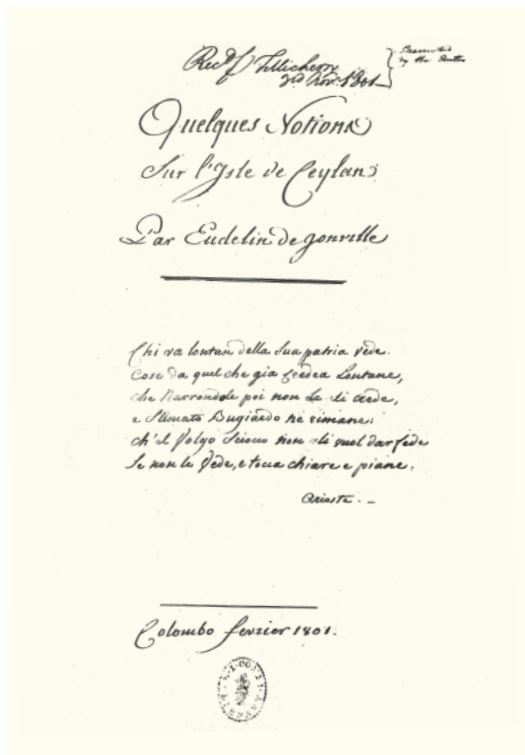 Recd. Tellicherry
3rd Novr. 1801
Presented
by the Author
Quelques Notions
Sur l'Isle de Ceylan
Par Eudelin de Jonville
Chi va lontan della Sua patria vede
Cose da quel che gia credea Lontane,
che Narrandole poi non Se li crede,
e Stimato Bugiardo ne rimane:
ch'el Volgo Sciocco non li vuol dar fede
Se non le Vede, e tocca chiare e piane.
Ariosto. _
Colombo fevrier 1801.